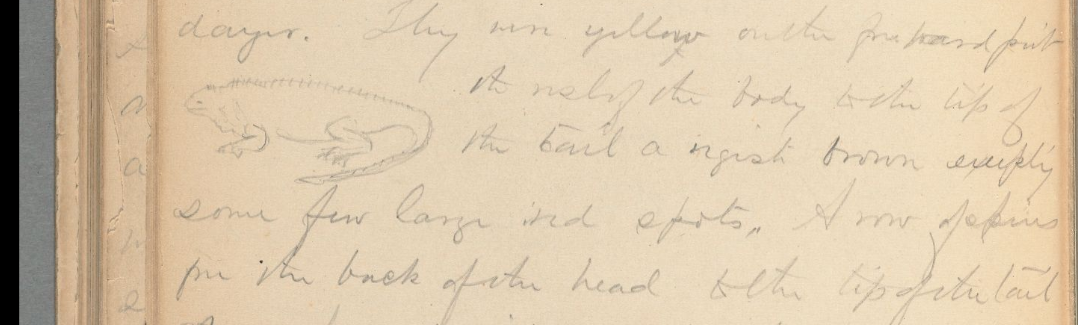 days. They were yellow on the forward part
the rest of the body to the tip of
the tail a brown
some few large red spots. A row of spines
fm the back of the head to the tip of the tail